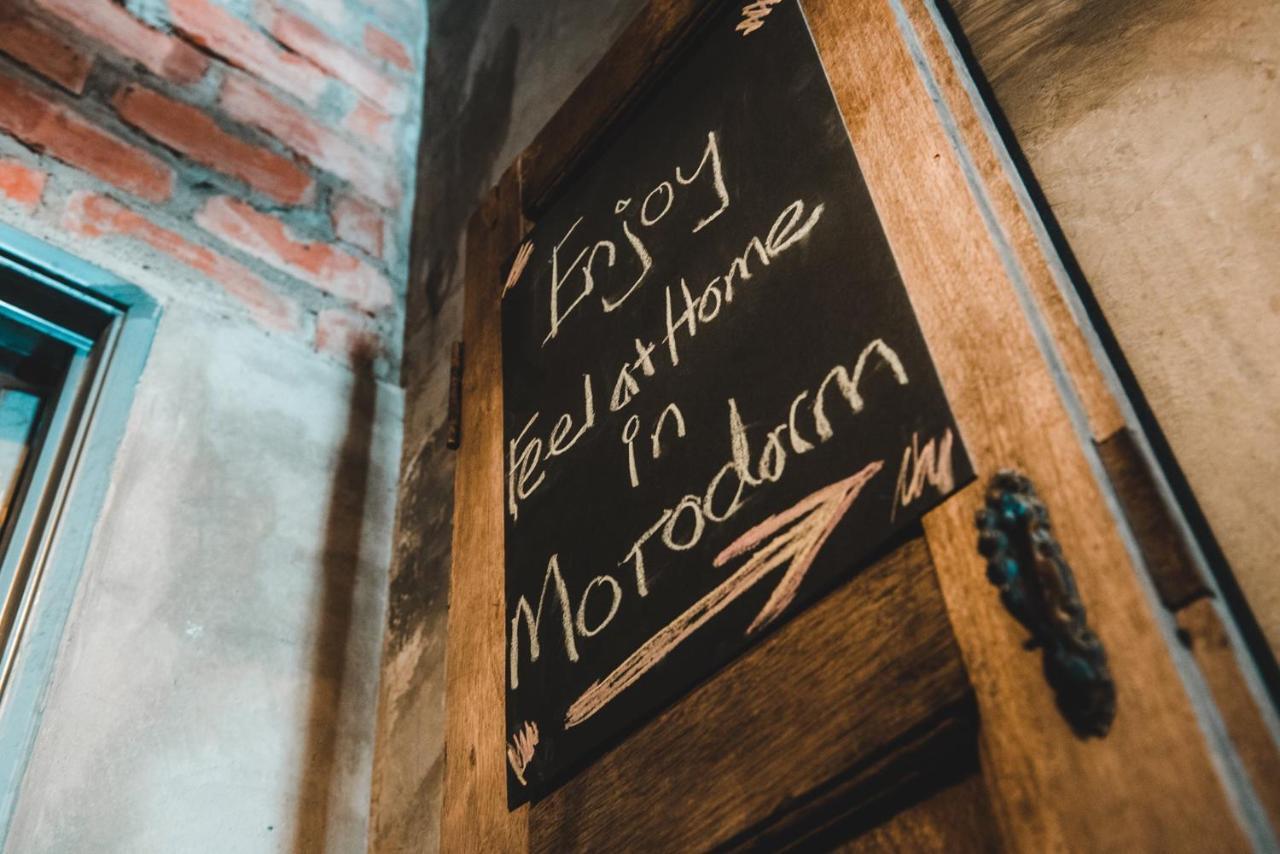 Enjoy
Feel at Home
in
Motodorm